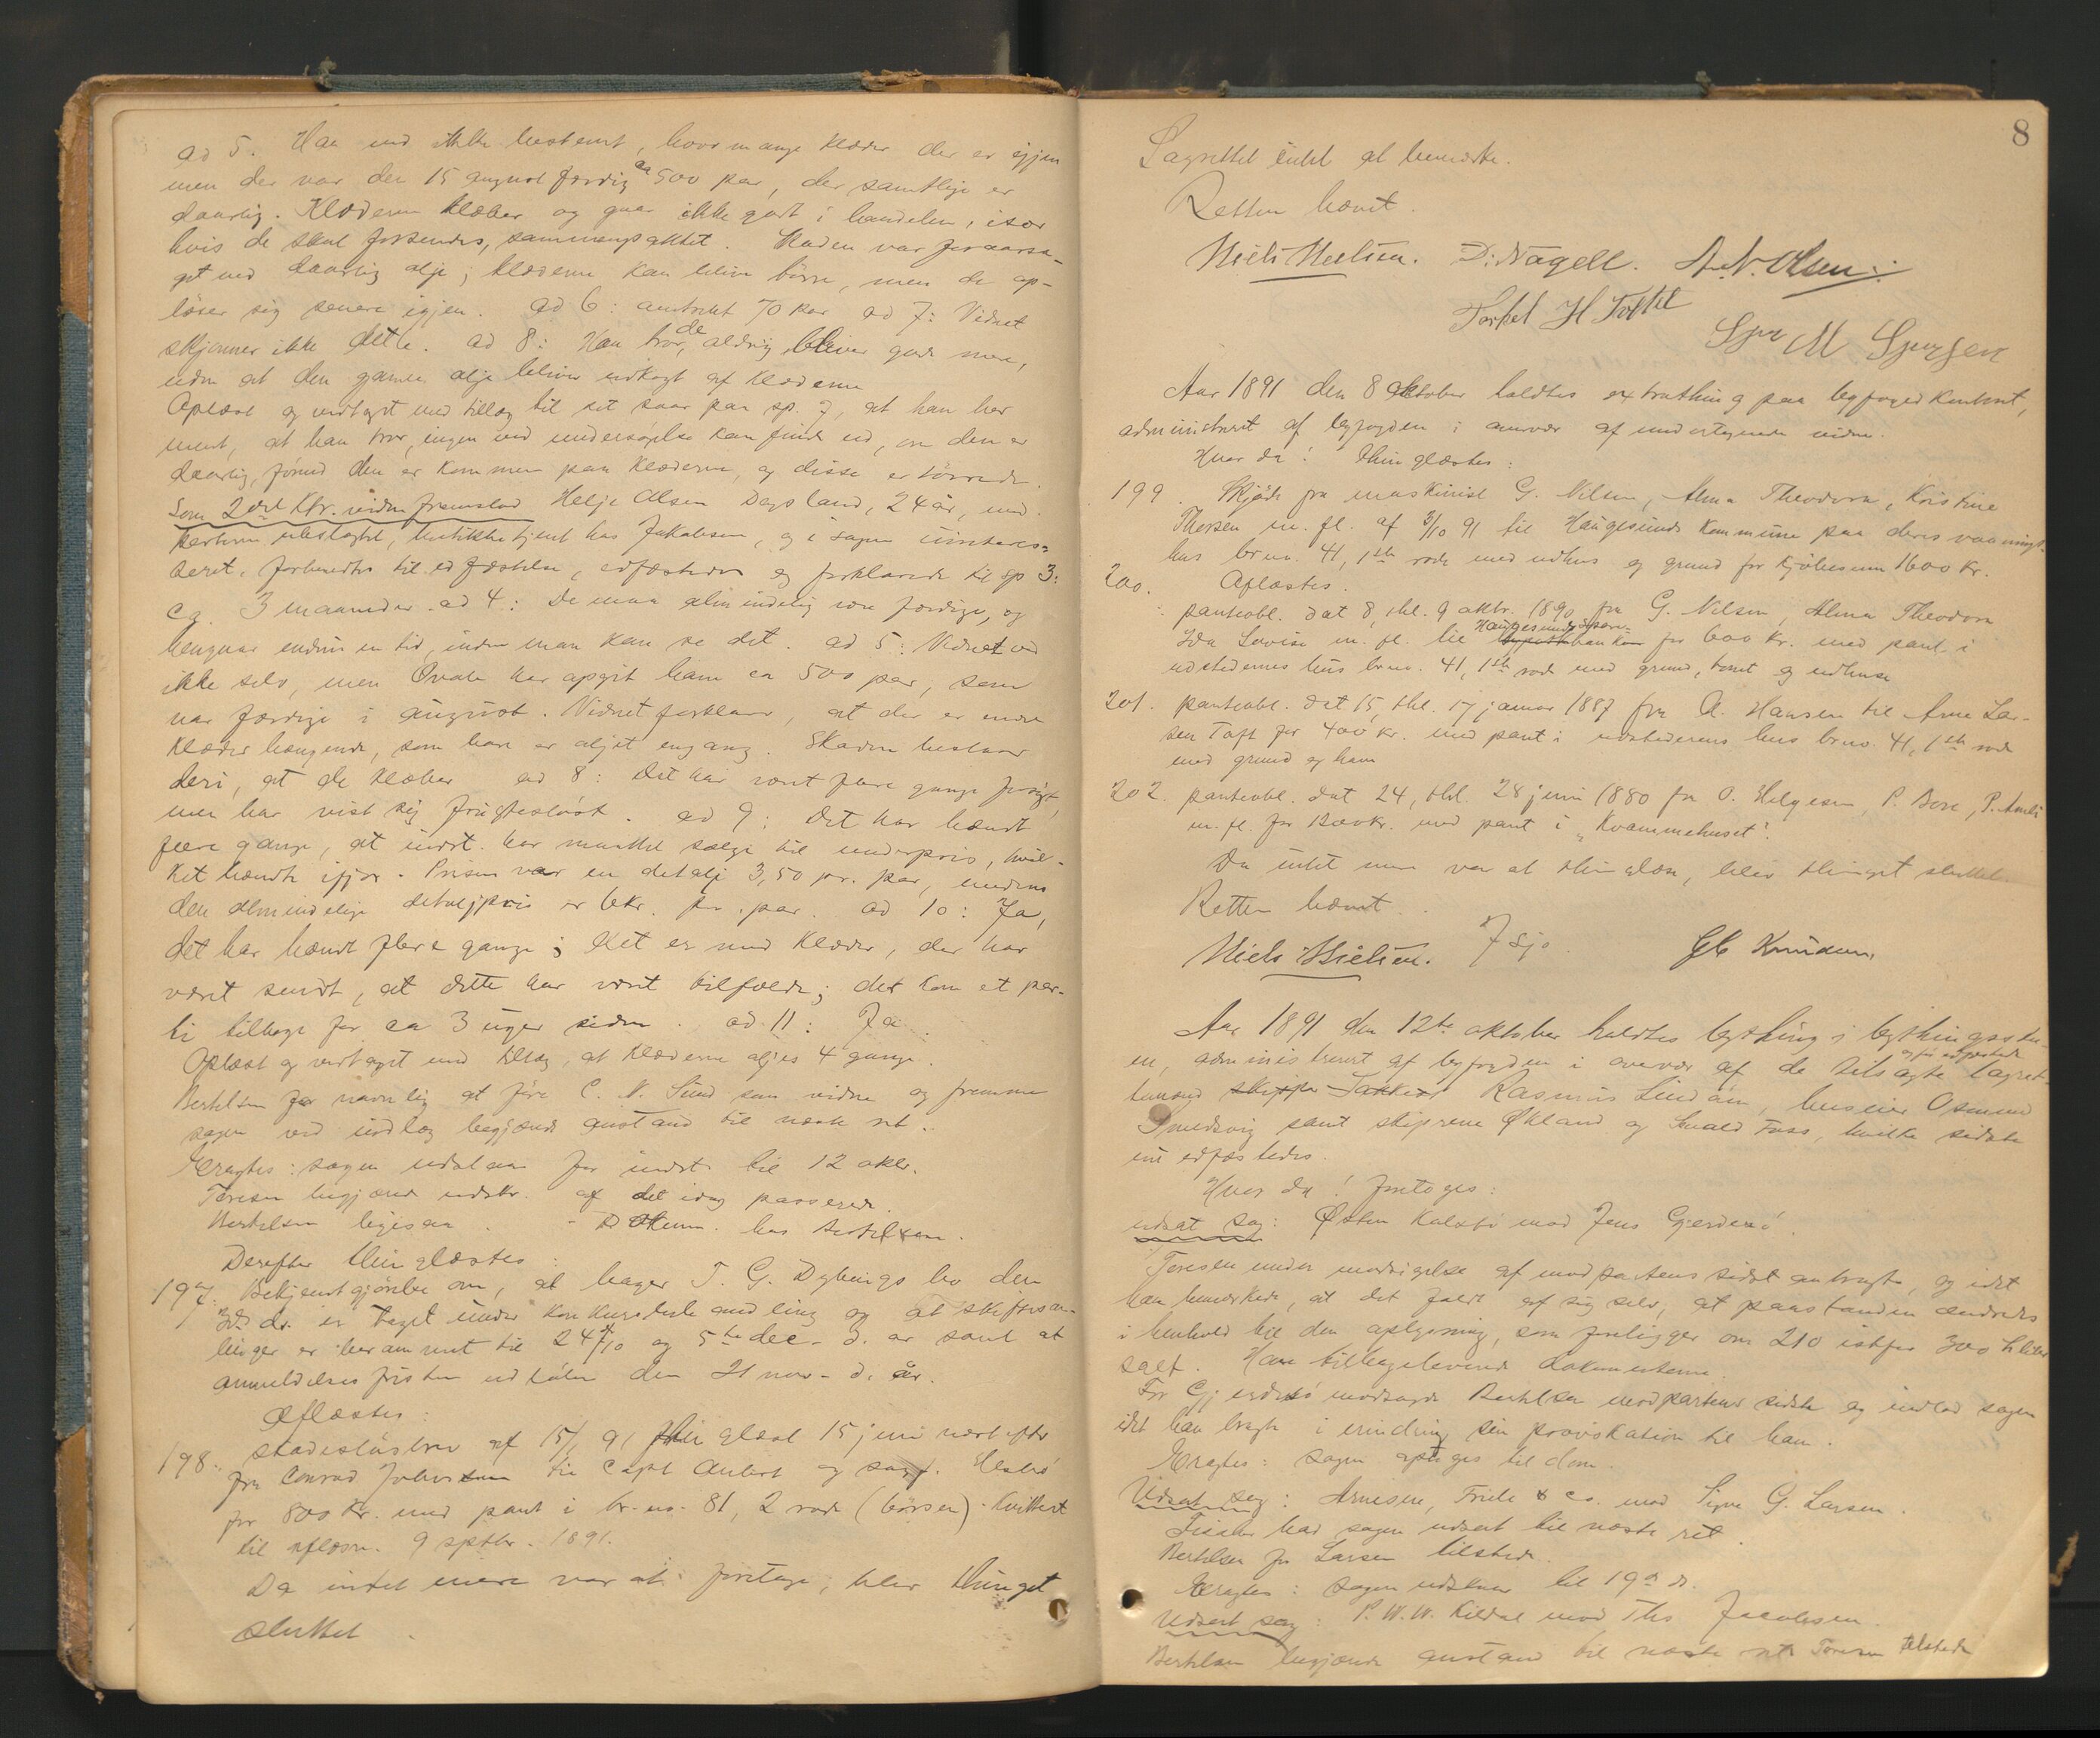 ad 5. Han ved ikke bestemt, hvor mange klæder der er igjen
men der var den 15 august færdig ca 500 par, der samtlige er
daarlig. Klæderne klæber og gaar ikke godt i handelen, især
hvis de skal forsendes, sammenpakket. Skaden var foraarsa-
get ved daarlig olje; klæderne kan blive tørre, men de op-
løser sig senere igjen. ad 6: omtrent 70 par ad 7: Vidnet
skjønner ikke dette. ad 8: Han tror, de aldrig bliver gode mere,
uden at den gamle olje bliver udkogt af klæderne
Oplæst og vedtaget med tillæg til sit svar paa sp. 7, at han har
ment, at han tror, ingen ved undersøgelse kan finde ud, om den er
daarlig, førend den er kommen paa klæderne, og disse er tørrede.
Som 2det ktr. vidne fremstod Helje Olsen Dagsland, 24 år, med
parterne ubeslægtet, butikbetjent hos Jakobsen, og i sagen uinteres-
seret, forberedtes til edfæstelse, edfæstedes og forklarede til sp 3:
ca. 3 maaneder. ad 4: De maa almindelig være færdige, og
hengaar endnu en tid, inden man kan se det. ad 5: Vidnet ved
ikke selv, men har opgit ham ca 500 par, som
var færdige i august. Vidnet forklarer, at der er endnu
klæder hængende, som bare er oljet engang. Skaden bestaar
deri, at de klæber ad 8: Det har været flere gange forsøgt,
men har vist sig frugtesløst. ad 9: Det har hændt
flere gange, at indst. har maattet sælge til underpris, hvil-
ket hændte ifjor. Prisen var en detalj 3,50 pr. par, medens
den almindelige detaljpris er 6kr. pr. par. ad 10: Ja,
det har hændt flere gange; det er med klæder, der har
været sendt, at dette har været tilfælde; det kom et par-
ti tilbage for ca 3 uger siden. ad 11: Ja.
Oplæst og vedtaget med tillæg, at klæderne oljes 4 gange.
Bertelsen for navnlig at føre C. N. Sund som vidne og fremme
sagen ved indlæg begjærede anstand til næste ret.
Eragtes: sagen udstaar for indst. til 12 oktr.
Toresen begjærede udskr. af det idag passerede.
Bertelsen ligesaa. - Dokum. hos Bertelsen.
Derefter thinglæstes:
197. Bekjentgjørelse om, at bager T. G. Dybings bo den
3die ds. er taget under konkursbehandling og at skiftesam-
linger er berammet til 24/10 og 5te dec. d. år samt at
anmeldelsesfristen udløber den 21 nov. d. år.
Aflæstes:
198. skadesløsbrev af 15/1 91 thinglæst 15 juni næstefter
fra Conrad Johnsen til Capt Aubert og sagf.
for 800 kr. med pant i br. no. 81, 2 rode (børsen). kvittert
til aflæsn. 9 septbr. 1891.
Da intet mere var at foretage, blev thinget
sluttet.
8
Lagrettet intet at bemærke.
Retten hævet.
Niels Nielsen. D. Nagell. A. N. Olsen.
Torkel H Toftel
M
Aar 1891 den 8 oktober holdtes extrathing paa byfogedkontoret,
administreret af byfogden i overvær af undertegnede vidner.
Hvor da! thinglæstes:
199. Skjøde fra maskinist G. Nilsen, Anna Theodora, Kristine
Thorsen m. fl. af 3/10 91 til Haugesunds kommune paa deres vaanings-
hus brno. 41, 1ste rode med udhus og grund for kjøbesum 1600 kr.
200. Aflæstes.
panteobl. dat 8, thl. 9 oktbr. 1890 fra G. Nilsen, Anna Theodora
Ida Lovise m. fl. til Haugesunds spare- banken for 600 kr. med pant i
udstedernes hus brno. 41, 1ste rode med grund, tomt og udhuse
201. panteobl. dat 15, thl. 17 januar 1887 fra A. Hansen til Arne Lar-
sen Toft for 400 kr. med pant i udstederens hus brno. 41, 1ste rode
med grund og have
202. panteobl. dat 24, thl. 28 juni 1880 fra O. Helgesen, P.
m. fl. for 1200kr. med pant i „Kvammehuset".
Da intet mere var at thinglæse, blev thinget sluttet.
Retten hævet.
Niels Nielsen. Knudsen
Aar 1891 den 12te oktober holdtes bything i bythingsstu-
en, administreret af byfogden i overvær af de tilsagte og før edfæstede lagret-
temænd skipper Rasmus Lindøen, huseier Osmund
Smedsvig samt skiprene Økland og Svald Foss, hvilke sidste
nu edfæstedes.
Hvor da! foretoges:
udsat sag: Østen Kalstø mod Jens Gjerdesø.
Toresen under modsigelse af modpartens sidst anbragte, og idet
han bemærkede, at det faldt af sig selv, at paastanden ændredes
i henhold til den oplysning, som foreligger om 210 istfor 300
salt. Han tilbageleverede dokumenterne.
For Gjerdesø modsagde Bertelsen modpartens sidste og indlod sagen
idet han bragte i erindring sin provokation til ham.
Eragtes: sagen optages til dom.
Udsat sag: Arnesen, Friele & co. mod Sigve G. Larsen.
bad sagen udsat til næste ret.
Bertelsen for Larsen tilstede.
Eragtes: sagen udstaar til 19de ds.
Udsat sag: P. W. W. Kildal mod Ths Jacobsen.
Bertelsen begjærede anstand til næste ret. Toresen tilstede